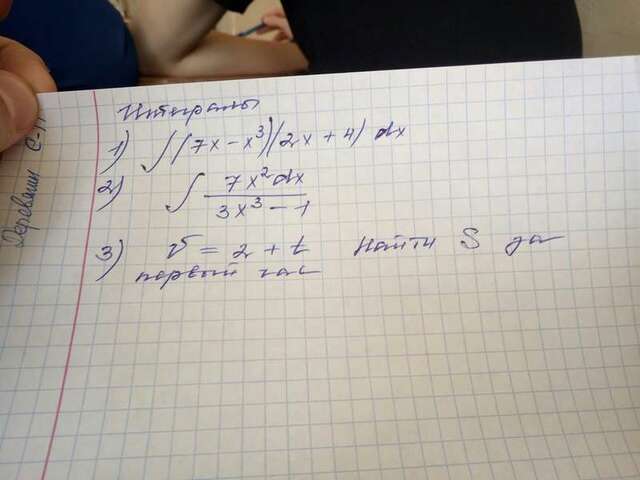 Интегралы
1) ∫(7x - x³)(2x + 4) dx
2) ∫ 7x² dx / 3x³ - 1
3) v = 2 + t найти S за
первый час